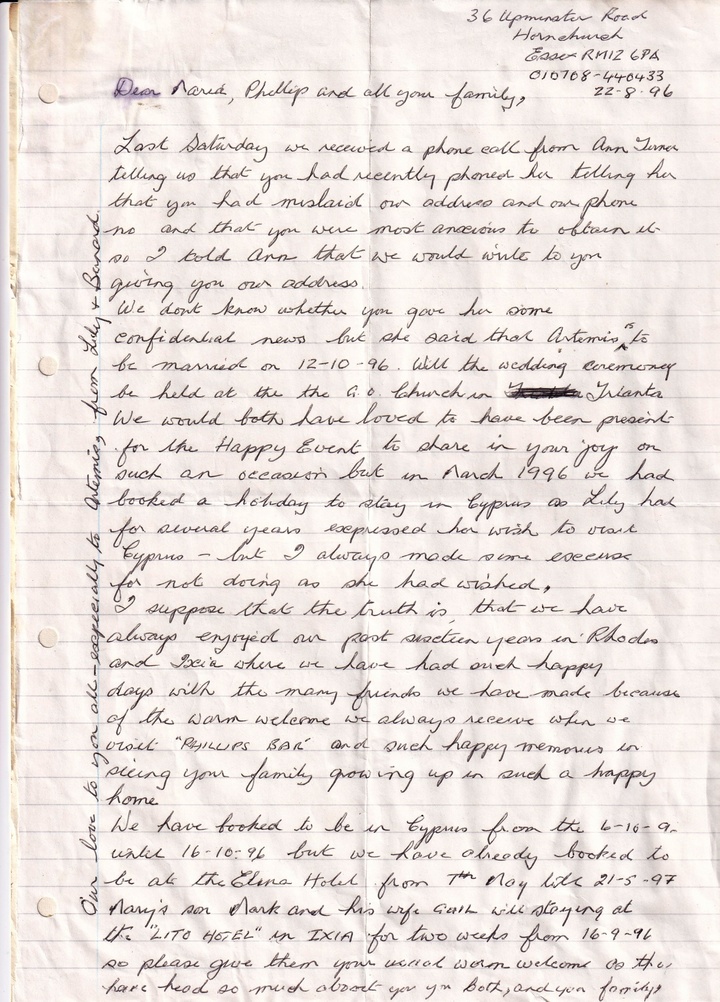 36 Upminster Road
Hornchurch
Essex RM12 6PA
010708-440433
22-8-96
Dear Maria, Phillip and all your family,
Last Saturday we received a phone call from Ann Turner
telling us that you had recently phoned her telling her
that you had mislaid our address and our phone
no and that you were most anxious to obtain it
so I told Ann that we would write to you
giving you our address.
We dont know whether you gave her some
confidential news but she said that Artemis is to
be married on 12-10-96. Will the wedding ceremoney
be held at the the G.O. Church in Trianta
We would both have loved to have been present
for the Happy Event to share in your joy on
such an occasion but in March 1996 we had
booked a holiday to stay in Cyprus as Lily had
for several years expressed her wish to visit
Cyprus - but I always made some excuse
for not doing as she had wished,
I suppose that the truth is, that we have
always enjoyed our past sixteen years in Rhodes
and Ixia where we have had such happy
days with the many friends we have made because
of the warm welcome we always receive when we
visit "PHILLIPS BAR" and such happy memories in
seeing your family growing up in such a happy
home
We have booked to be in Cyprus from the 6-10-9
until 16-10-96 but we have already booked to
be at the Elina Hotel from 7th May till 21-5-97
Mary's son Mark and his wife will staying at
the "LITO HOTEL" in IXIA for two weeks from 16-9-96
so please give them your usual warm welcome as the
have head so much about you Both, and your family,
Our love to you all - especially to Artemis, from Lily + Bernard.